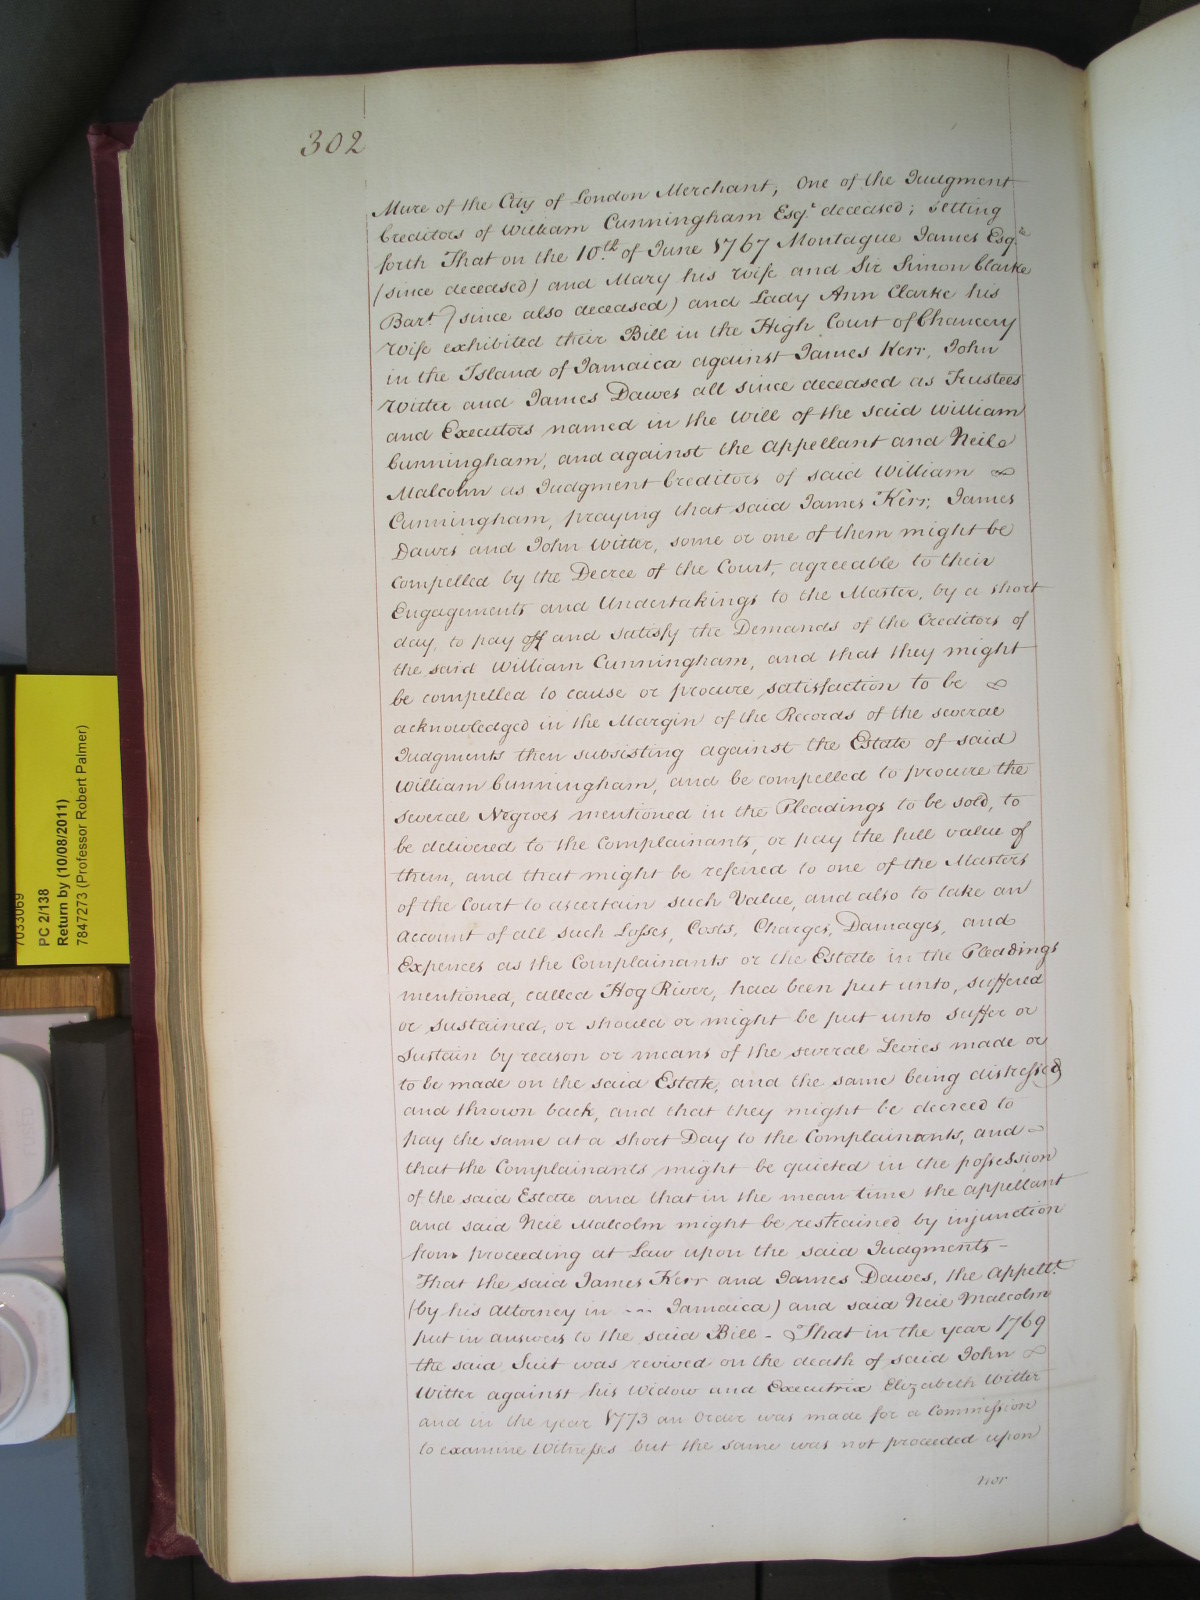 302
Mure of the City of London Merchant, One of the Judgment
Creditors of William Cunningham Esqr. deceased; setting
forth That on the 10th. of June 1767 Montague James Esqre.
(since deceased) and Mary his Wife and Sir Simon Clarke
Bart. (since also deceased) and Lady Ann Clarke his
Wife exhibited their Bill in the High Court of Chancery
in the Island of Jamaica against James Kerr, John
Witter and James Dawes all since deceased as Trustees
and Executors named in the Will of the said William
Cunningham, and against the Appellant and Neil
Malcolm as Judgment Creditors of said William
Cunningham, praying that said James Kerr, James
Dawes and John Witter, some or one of them might be
compelled by the Decree of the Court, agreeable to their
Engagements and Undertakings to the Master, by a short
day, to pay off and satisfy the Demands of the Creditors of
the said William Cunningham, and that they might
be compelled to cause or procure satisfaction to be
acknowledged in the Margin of the Records of the several
Judgments then subsisting against the Estate of said
William Cunningham, and be compelled to procure the
several Negroes mentioned in the Pleadings to be sold, to
be delivered to the Complainants, or pay the full value of
them, and that might be referred to one of the Masters
of the Court to ascertain such Value, and also to take an
Account of all such Losses, Costs, Charges, Damages, and
Expences as the Complainants or the Estate in the Pleadings
mentioned, called Hog River, had been put unto, suffered
or sustained, or should or might be put unto suffer or
Sustain by reason or means of the several Levies made or
to be made on the said Estate, and the same being distressed
and thrown back, and that they might be decreed to
pay the same at a short Day to the Complainants, and
that the Complainants might be quieted in the possession
of the said Estate and that in the mean time the appellant
and said Neil Malcolm might be restrained by injunction
from proceeding at Law upon the said Judgments -
That the said James Kerr and James Dawes, the Appellt.
(by his Attorney in --- Jamaica) and said Neil Malcolm
put in answers to the said Bill - That in the year 1769
the said Suit was revived on the death of said John
Witter against his Widow and Executrix Elizabeth Witter
and in the year 1773 an Order was made for a Commission
to examine Witnesses but the same was not proceeded upon
nor
7033069
PC 2/138
Return by (10/08/2011)
7847273 (Professor Robert Palmer)
FUSED